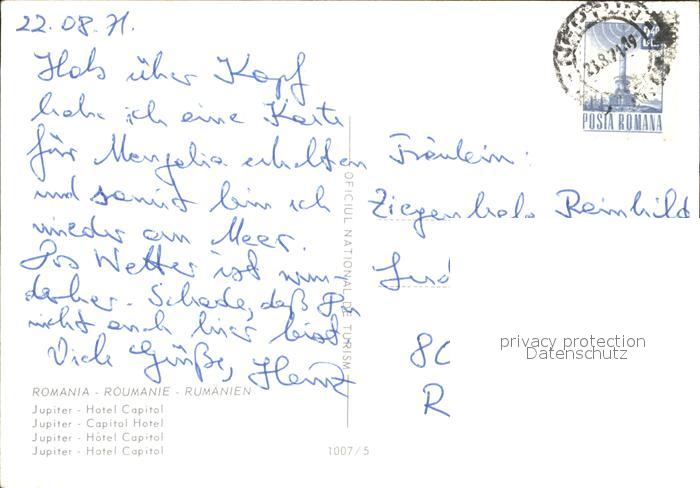 22.08.71.
Hals über Kopf
habe ich eine Karte
für Mangalia erhalten
und somit bin ich
wieder am Meer.
Das Wetter ist wun-
derbar. Schade, daß Du
nicht auch hier bist.
Viele Grüße, Heinz
ROMANIA - ROUMANIE - RUMÄNIEN
Jupiter - Hotel Capitol
Jupiter - Capitol Hotel
Jupiter - Hôtel Capitol
Jupiter - Hotel Capitol
1007/5
OFICIUL NATIONAL DE TURISM
23.8.71.19
POSTA ROMANA
Fräulein:
Ziegenhals Reinhild
80
R
privacy protection
Datenschutz